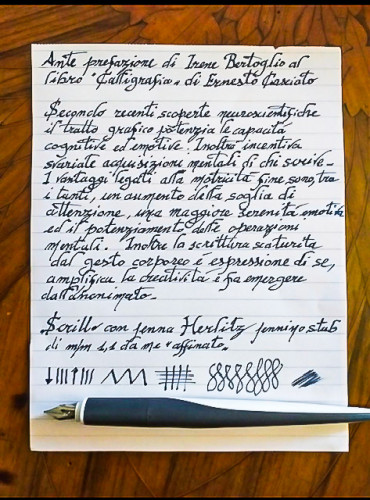 Ante prefazione di Irene Bertoglio al
libro "Calligrafia" di Ernesto Casciato
Secondo recenti scoperte neuroscientifiche
il tratto grafico potenzia le capacità
cognitive ed emotive. Inoltre incentiva
svariate acquisizione mentali di chi scrive-
I vantaggi legati alla motricità fine sono, tra
i tanti, un aumento della soglia di
attenzione, una maggiore serenità emotiva
ed il potenziamento delle operazioni
mentali. Inoltre la scrittura scaturita
dal gesto corporeo é espressione di se,
amplifica la creatività e fa emergere
dall'anonimato-
Scritto con penna Herlitz pennino stub
di m/m 1,1 da me "affinato"